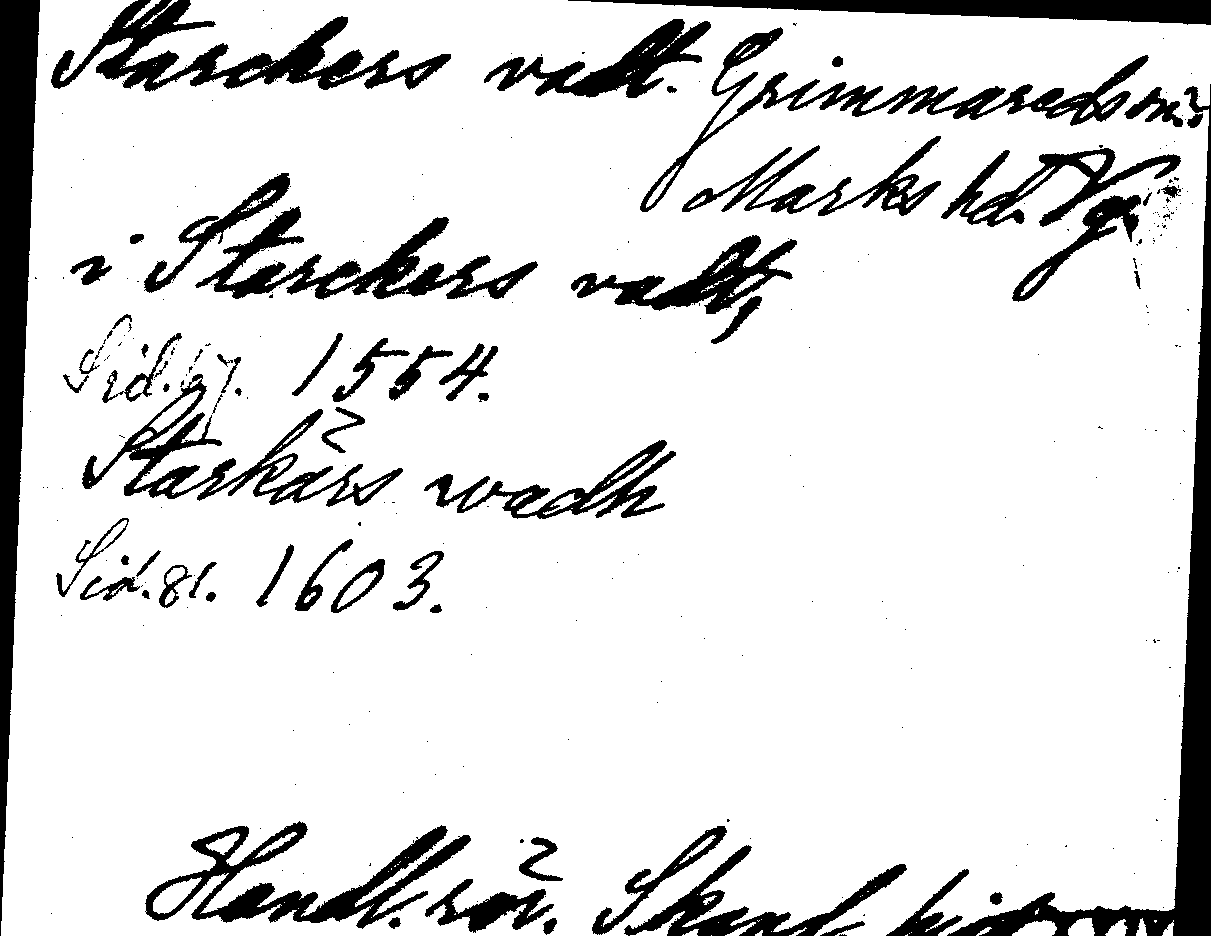 Starckers vadt. Grimmareds sn?
Marks hd. Vg.
i Starckers vadt,
Sid. 67. 1554.
Starkärs wadh
Sid. 81. 1603.
Handl. rör. Skand. hist.